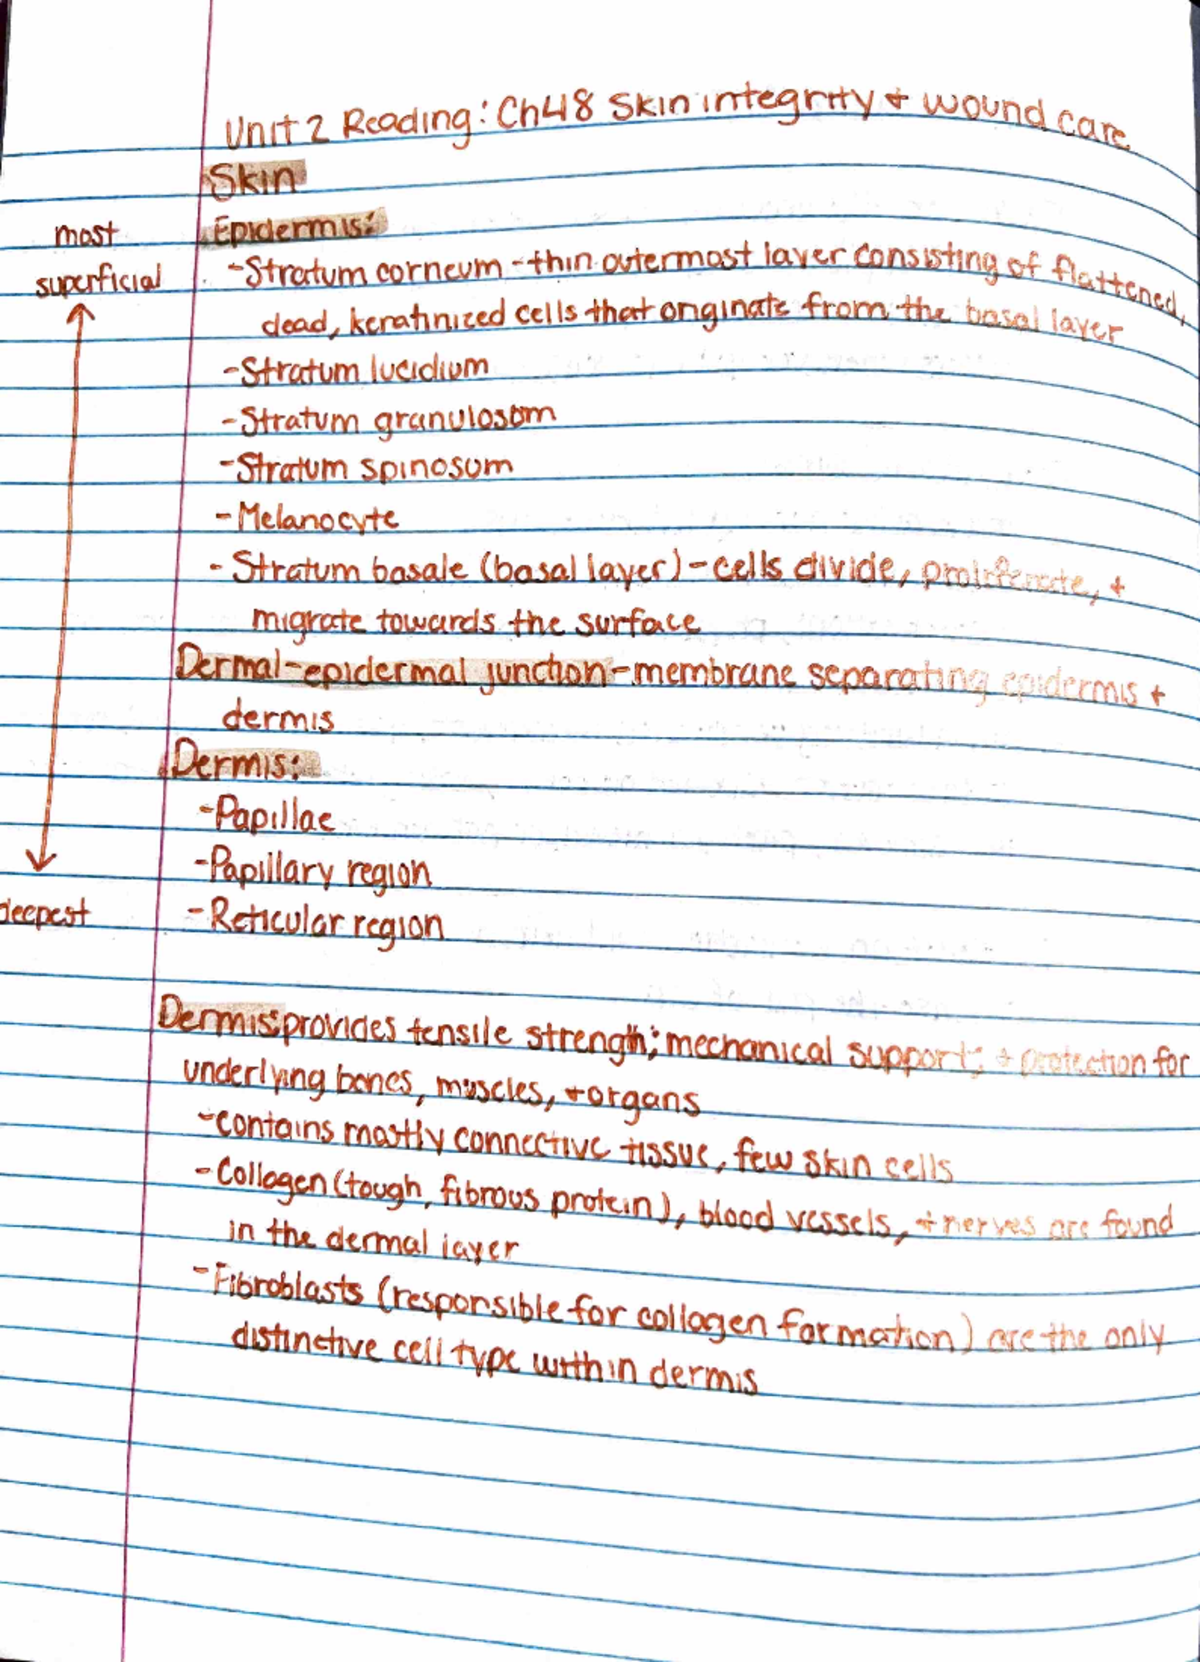 Unit 2 Reading: Ch48 Skin integrity + wound care
Skin
most
Epidermis:
superficial
-Stratum corneum - thin outermost layer consisting of flattened,
dead, keratinized cells that originate from the basal layer
-Stratum lucidium
-Stratum granulosum
-Stratum spinosum
-Melanocyte
-Stratum basale (basal layer) - cells divide, proliferate, +
migrate towards the surface
Dermal-epidermal junction - membrane separating epidermis +
dermis
Dermis:
-Papillae
-Papillary region
deepest
-Reticular region
Dermis: provides tensile strength; mechanical support; + protection for
underlying bones, muscles, + organs
-contains mostly connective tissue, few skin cells
-Collagen (tough, fibrous protein), blood vessels, + nerves are found
in the dermal layer
-Fibroblasts (responsible for collagen formation) are the only
distinctive cell type within dermis